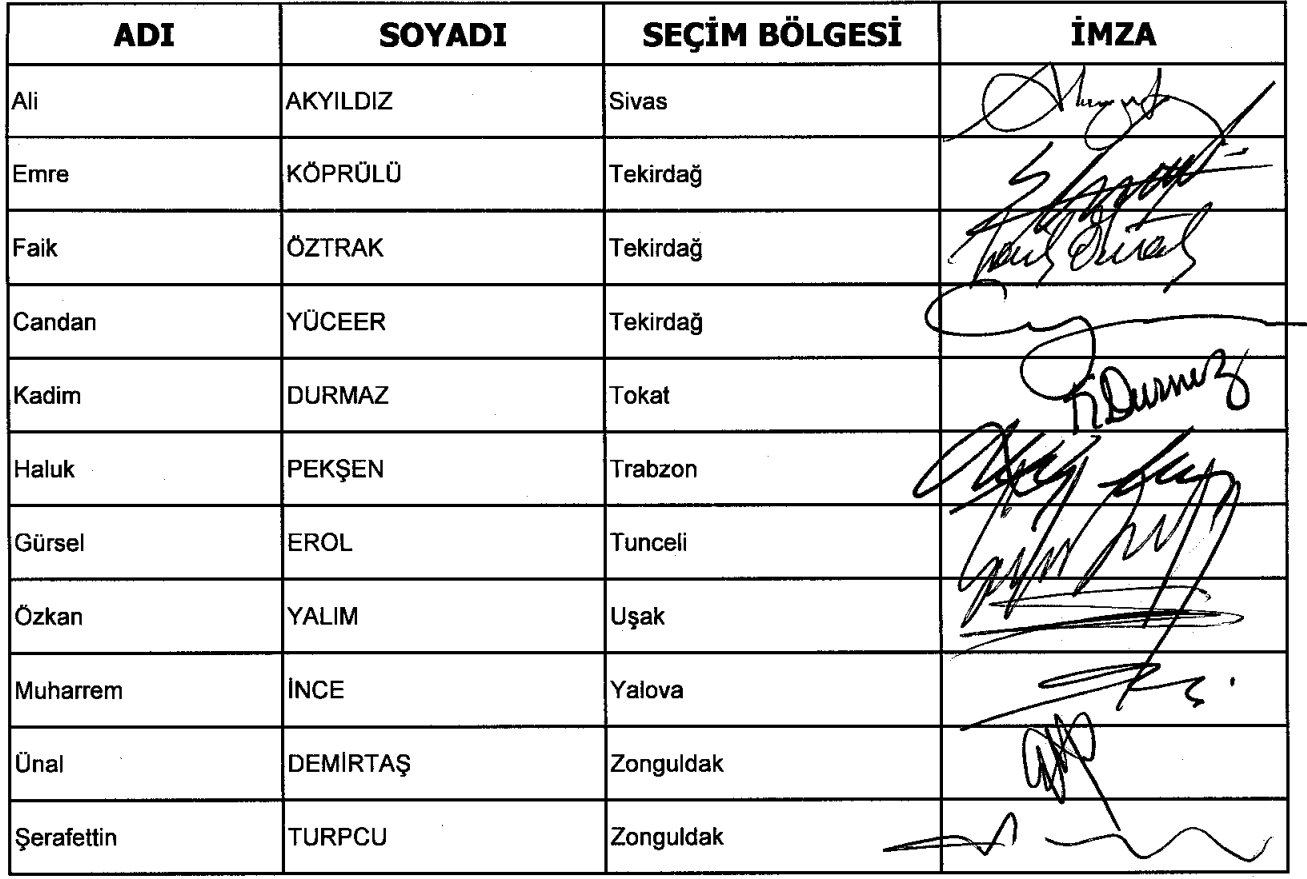 ADI SOYADI SEÇİM BÖLGESİ İMZA
Ali AKYILDIZ Sivas
Emre KÖPRÜLÜ Tekirdağ
Faik ÖZTRAK Tekirdağ
Candan YÜCEER Tekirdağ
Kadim DURMAZ Tokat K.Durmaz
Haluk PEKŞEN Trabzon
Gürsel EROL Tunceli
Özkan YALIM Uşak
Muharrem İNCE Yalova
Ünal DEMİRTAŞ Zonguldak
Şerafettin TURPCU Zonguldak